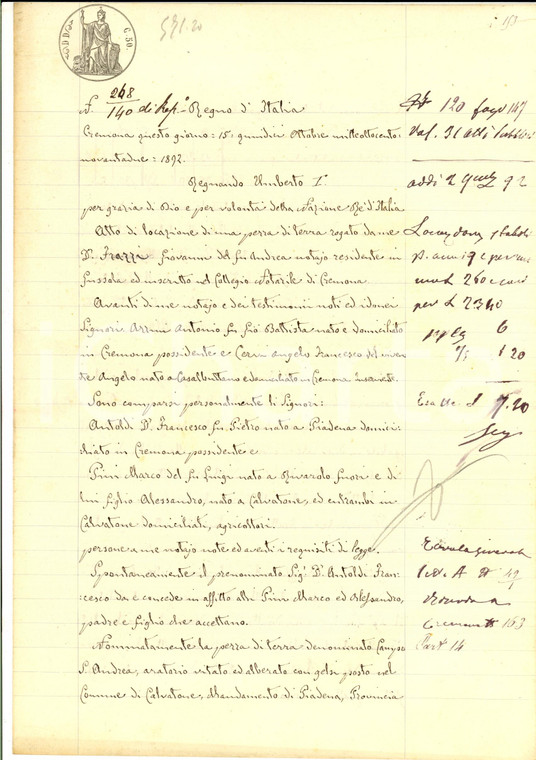 571.20
153
C. 50.
N. 268
140 di Rep.° Regno d'Italia
Cremona questo giorno = 15 = quindici Ottobre milleottocento:
novantadue = 1892.
Regnando Umberto I°
per grazia di Dio e per volontà della Nazione Re d'Italia
Atto di locazione di una pezza di terra rogato da me
D.r Frazzi Giovanni del fu Andrea notajo residente in
ed inscritto nel Collegio Notarile di Cremona.
Avanti di me notajo e dei testimonii noti ed idonei
Signori Arrini Antonio fu Gio Battista nato e domiciliato
in Cremona possidente e Cervi Angelo Francesco del viven
te Angelo nato a Casalbuttano e domiciliato in Cremona
Sono comparsi personalmente li Signori:
Antoldi D.r Francesco fu Pietro nato a Piadena domici:
liato in Cremona possidente e
Pini Marco del fu Luigi nato a Rivarolo fuori e di
lui figlio Alessandro, nato a Calvatone, ed entrambi in
Calvatone domiciliati, agricoltori.
persone a me notajo note ed aventi i requisiti di legge.
Spontaneamente il prenominato Sig.r D.r Antoldi Fran:
cesco dà e concede in affitto alli Pini Marco ed Alessandro,
padre e figlio che accettano.
Nominatamente la pezza di terra denominato Campo
S. Andrea, aratorio vitato ed alberato con gelsi posto nel
Comune di Calvatone, Mandamento di Piadena, Provincia
N° 120 fog° 147
Vol. 31 atti Pubblici
addì 2 92
p. anni 9 e per
L 260 e
per L 2340
6
1 20
Esatte L 7.20
N° 49
Cremona 153
Part 14